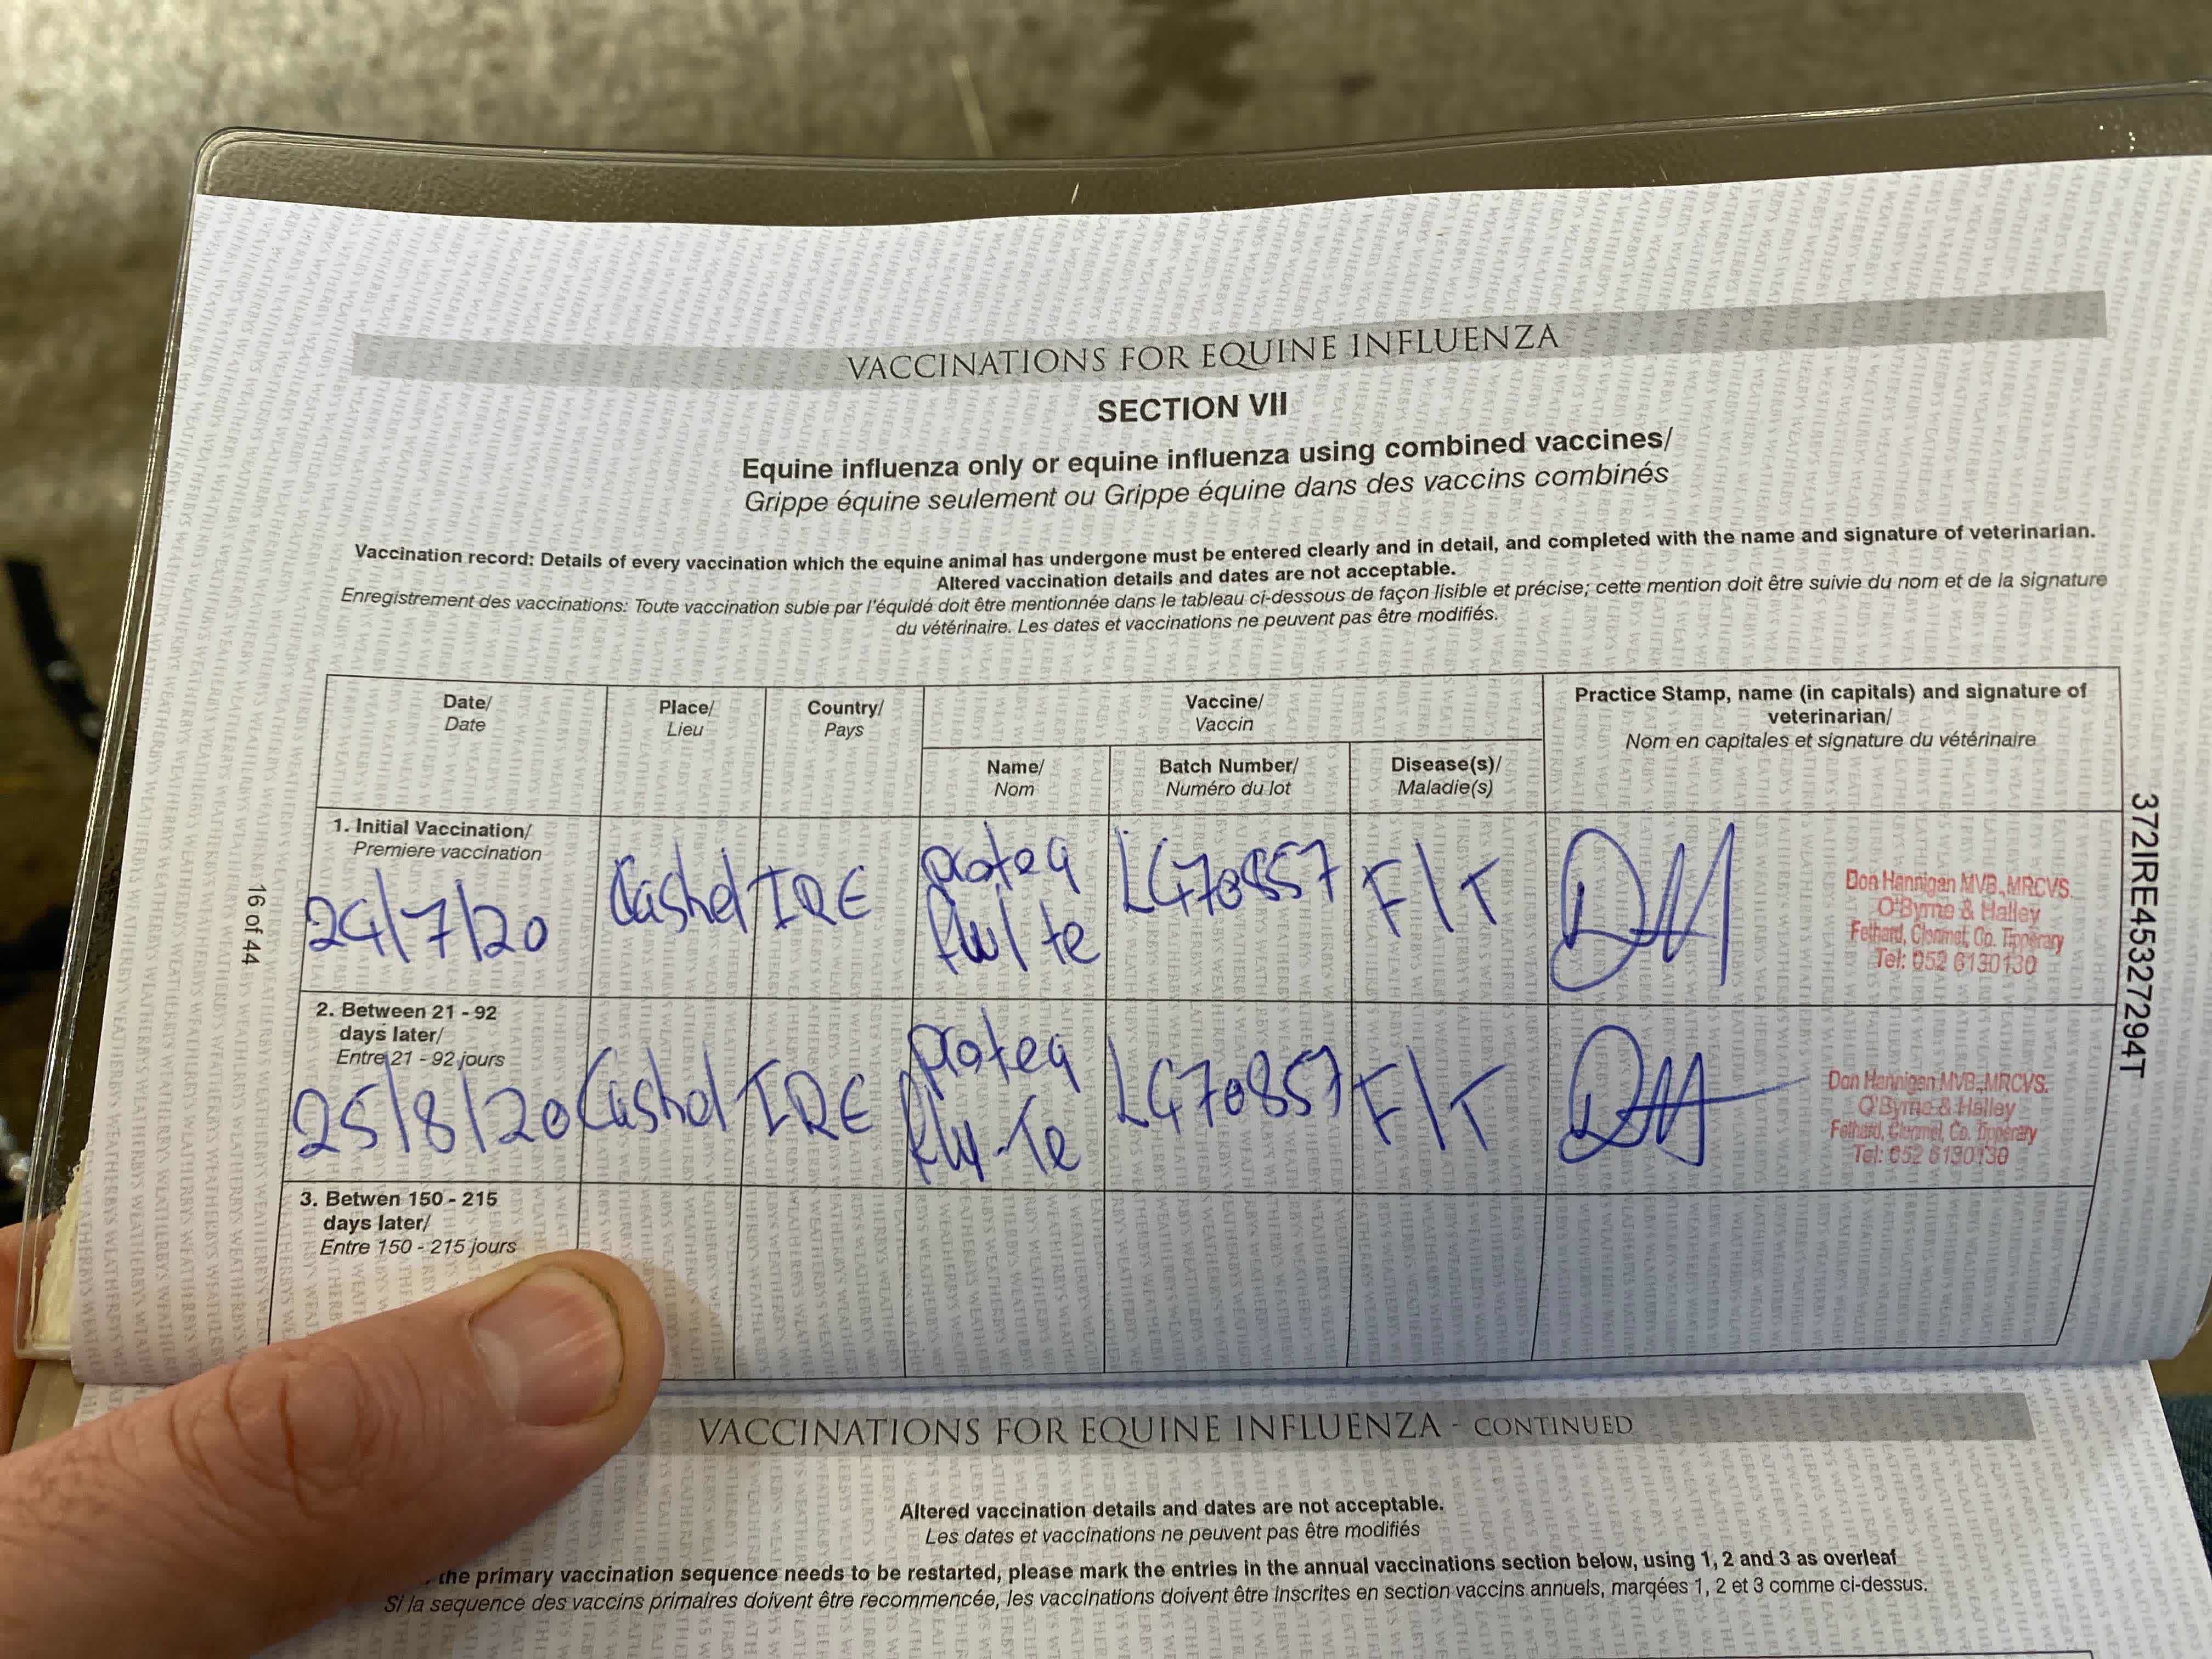 VACCINATIONS FOR EQUINE INFLUENZA
SECTION VII
Equine influenza only or equine influenza using combined vaccines/
Grippe équine seulement ou Grippe équine dans des vaccins combinés
Vaccination record: Details of every vaccination which the equine animal has undergone must be entered clearly and in detail, and completed with the name and signature of veterinarian.
Altered vaccination details and dates are not acceptable.
Enregistrement des vaccinations: Toute vaccination subie par l'équidé doit être mentionnée dans le tableau ci-dessous de façon lisible et précise; cette mention doit être suivie du nom et de la signature
du vétérinaire. Les dates et vaccinations ne peuvent pas être modifiés.
Date/
Date
Place/
Lieu
Country/
Pays
Vaccine/
Vaccin
Name/
Nom
Batch Number/
Numéro du lot
Disease(s)/
Maladie(s)
Practice Stamp, name (in capitals) and signature of
veterinarian/
Nom en capitales et signature du vétérinaire
1. Initial Vaccination/
Premiere vaccination
24/7/20
Cashel
IRE
proteq
flu/te
L470857
F/T
DH
Don Hannigan MVB., MRCVS.
O'Byrne & Halley
Fethard, Clonmel, Co. Tipperary
Tel: 052 6130130
2. Between 21 - 92
days later/
Entre 21 - 92 jours
25/8/20
Cashel
IRE
proteq
flu-Te
L470857
F/T
DH
Don Hannigan MVB., MRCVS.
O'Byrne & Halley
Fethard, Clonmel, Co. Tipperary
Tel: 052 6130130
3. Betwen 150 - 215
days later/
Entre 150 - 215 jours
16 of 44
372IRE45327294T
VACCINATIONS FOR EQUINE INFLUENZA - CONTINUED
Altered vaccination details and dates are not acceptable.
Les dates et vaccinations ne peuvent pas être modifiés
the primary vaccination sequence needs to be restarted, please mark the entries in the annual vaccinations section below, using 1, 2 and 3 as overleaf
Si la sequence des vaccins primaires doivent être recommencée, les vaccinations doivent être inscrites en section vaccins annuels, marqées 1, 2 et 3 comme ci-dessus.